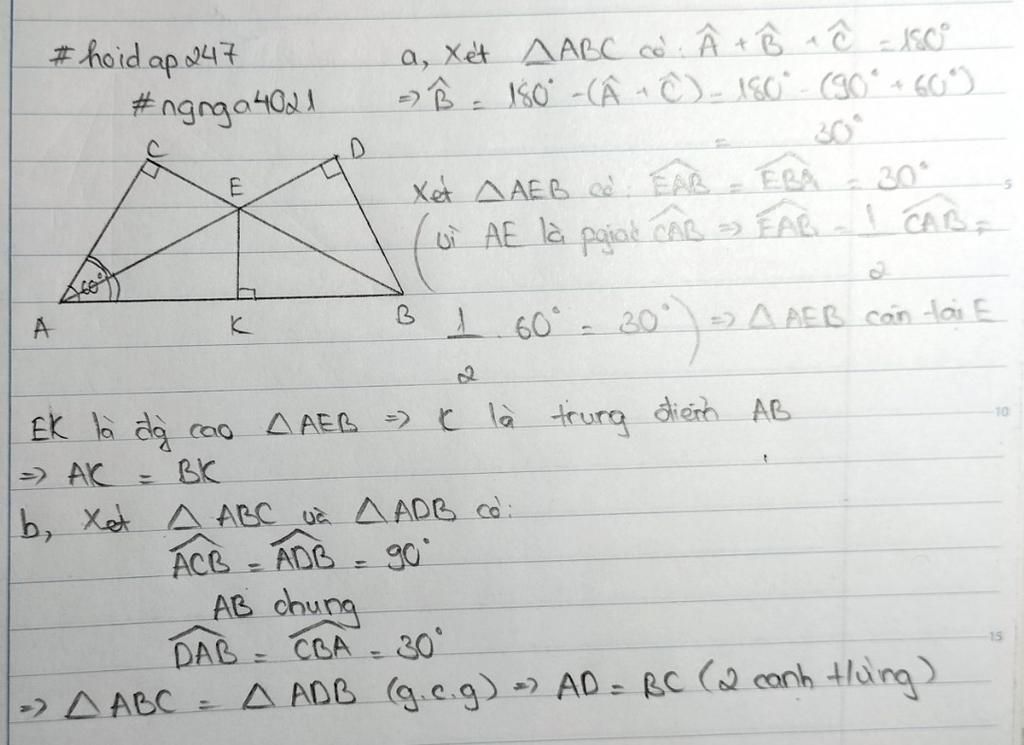 #hoidap247
#ngnga4021
a, Xét △ABC có: Â + B̂ + Ĉ = 180°
=> B̂ = 180° - (Â + Ĉ) = 180° - (90° + 60°)
= 30°
C
D
E
60°
A
K
B
Xét △AEB có: \widehat{EAB} = \widehat{EBA} = 30°
(vì AE là pgiác \widehat{CAB} => \widehat{EAB} = 1/2 \widehat{CAB} =
1/2 . 60° = 30°) => △AEB cân tại E
EK là đg cao △AEB => K là trung điểm AB
=> AK = BK
b, Xét △ABC và △ADB có:
\widehat{ACB} = \widehat{ADB} = 90°
AB chung
\widehat{DAB} = \widehat{CBA} = 30°
=> △ABC = △ADB (g.c.g) => AD = BC (2 cạnh t/ứng)
5
10
15